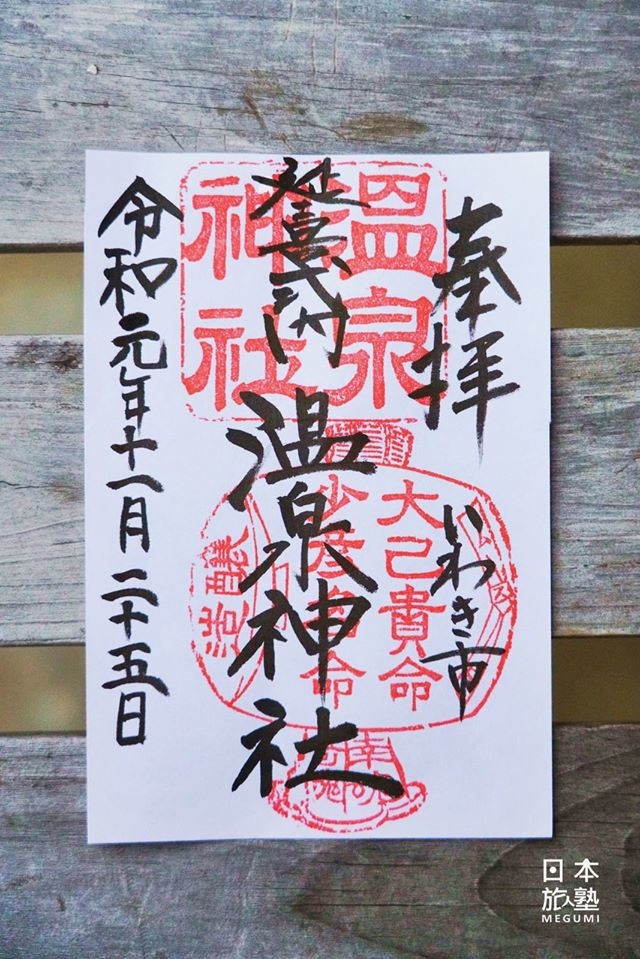 奉拝
いわき市
延喜式内
温泉神社
令和元年十一月二十五日
温泉
神社
大己貴命
少彦名命
醸造
日本
旅塾
MEGUMI